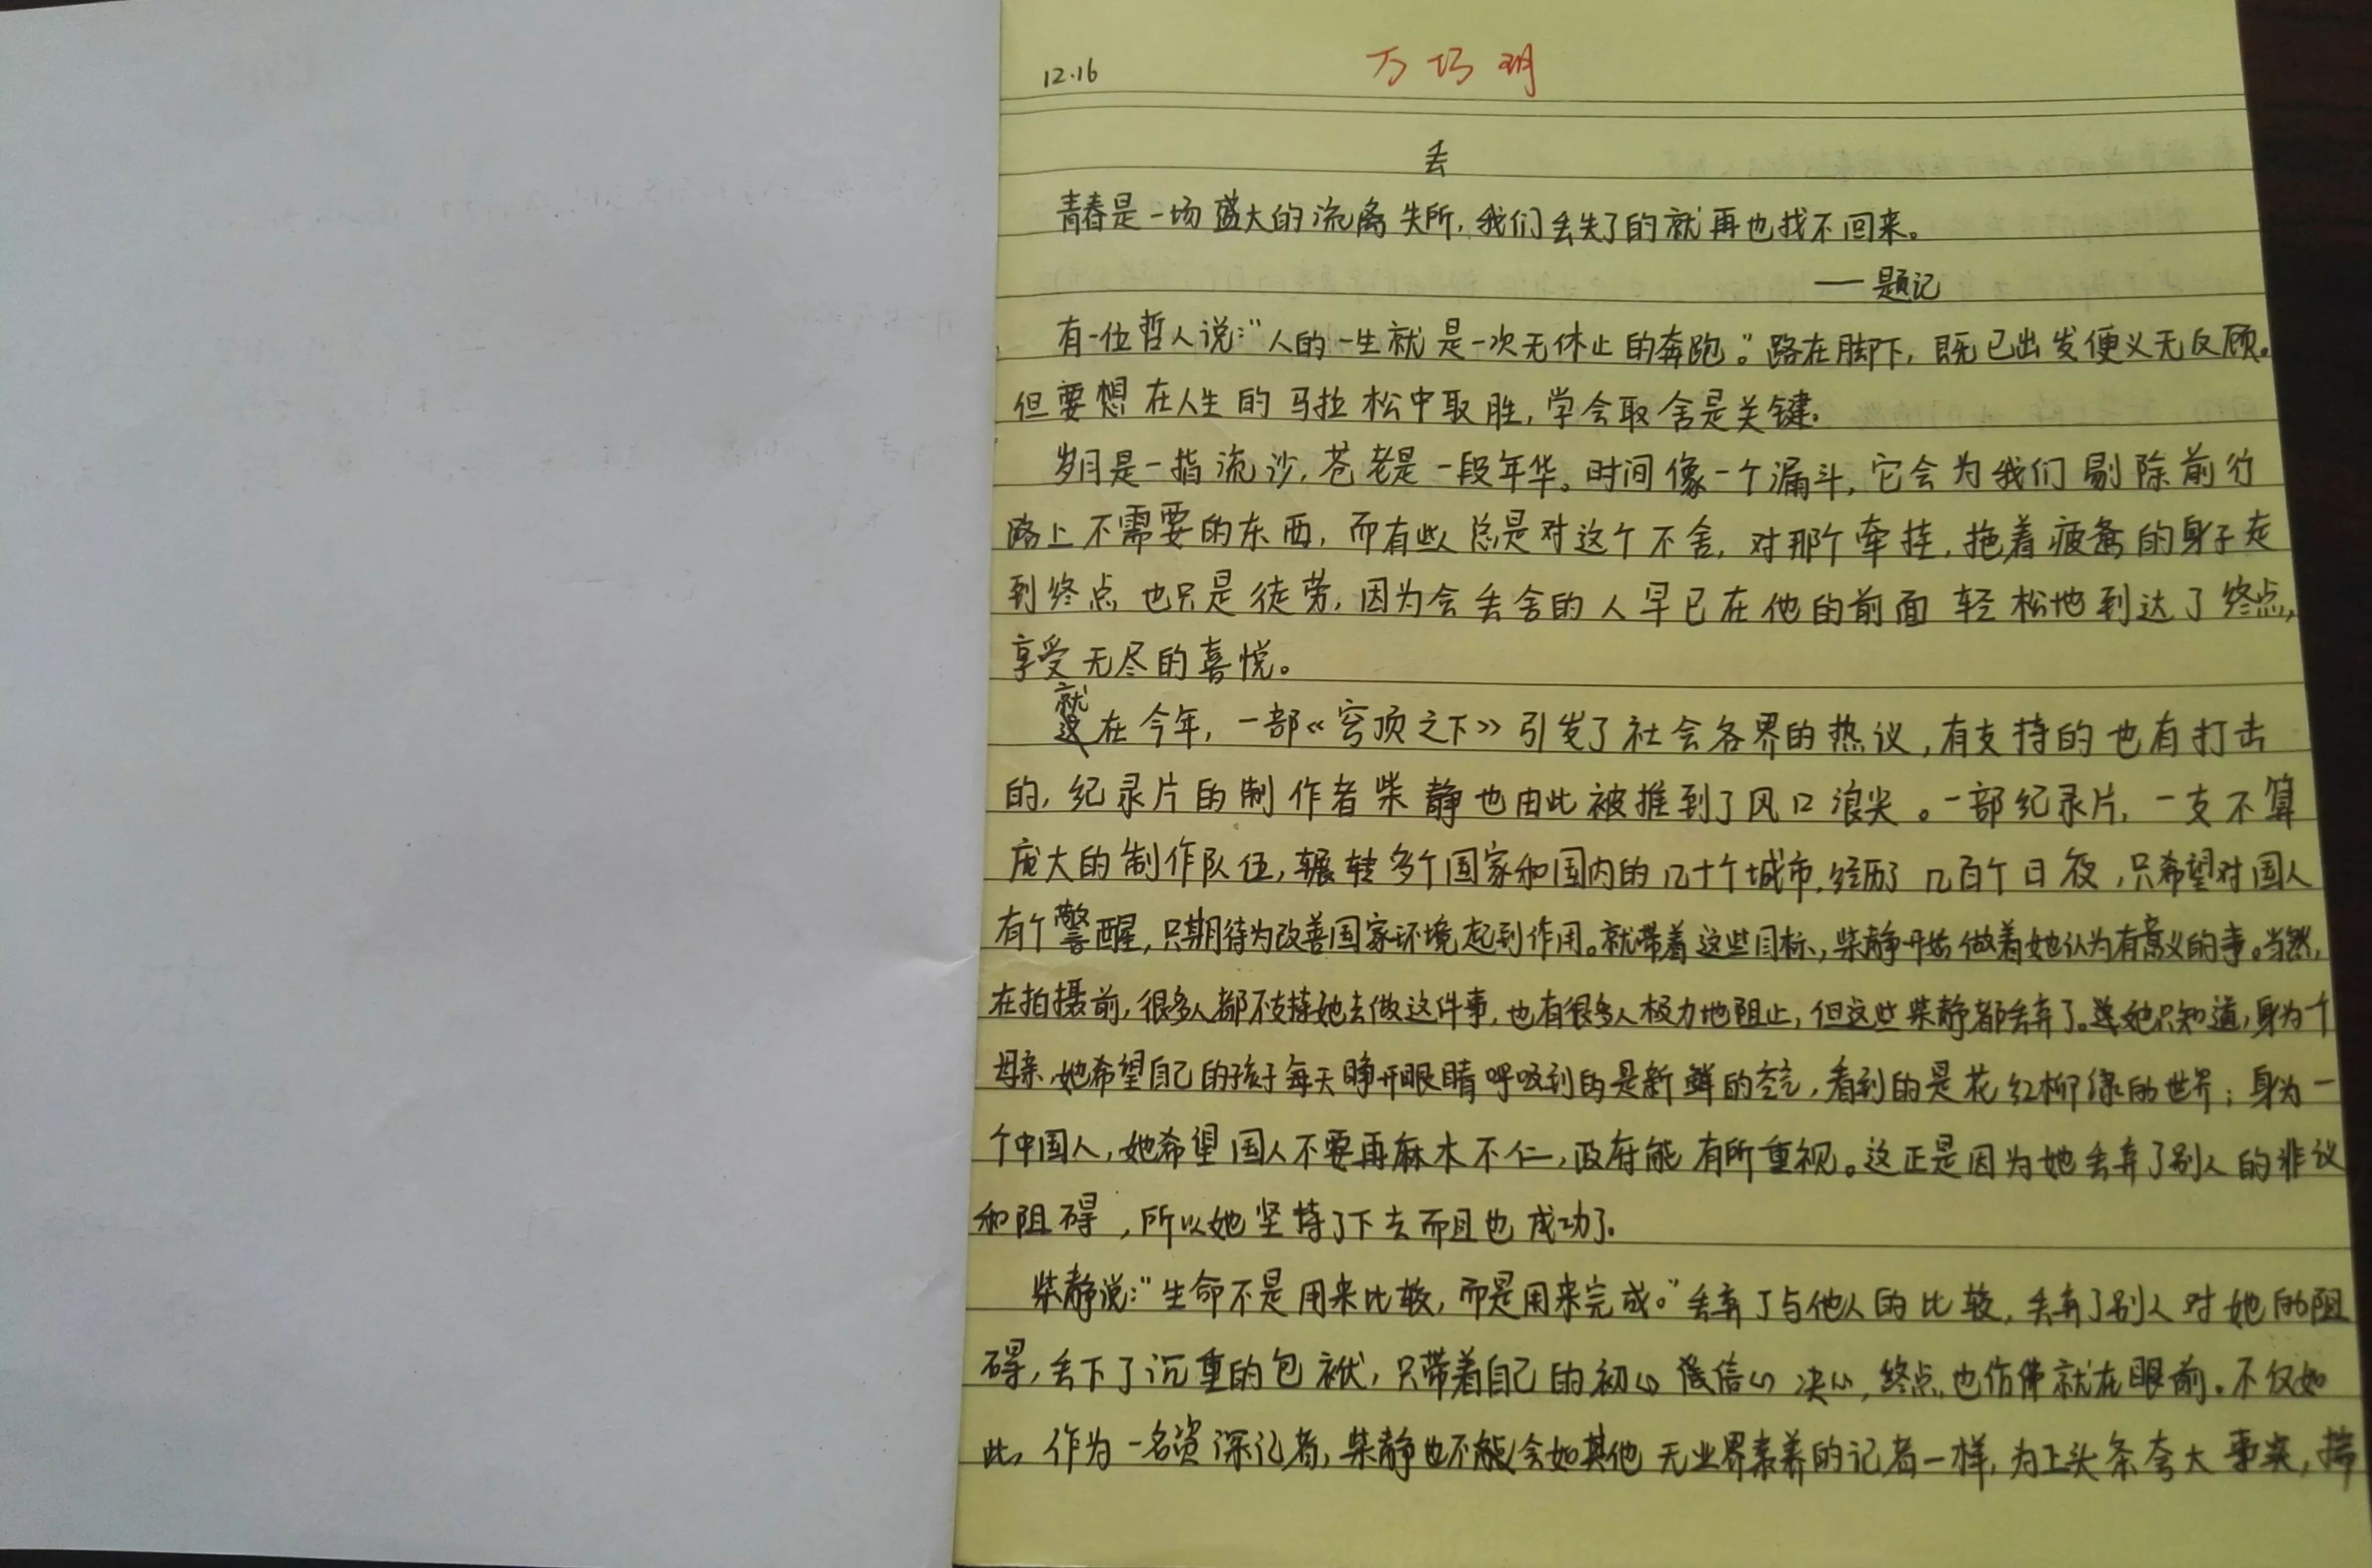 12.16
万巧玥
丢
青春是一场盛大的流离失所，我们丢失了的就再也找不回来。
——题记
有一位哲人说：“人的一生就是一次无休止的奔跑。”路在脚下，既已出发便义无反顾。
但要想在人生的马拉松中取胜，学会取舍是关键。
岁月是一指流沙，苍老是一段年华。时间像一个漏斗，它会为我们剔除前行
路上不需要的东西，而有些人总是对这个不舍，对那个牵挂，拖着疲惫的身子走
到终点也只是徒劳，因为会丢舍的人早已在他的前面轻松地到达了终点，
享受无尽的喜悦。
就在今年，一部《穹顶之下》引发了社会各界的热议，有支持的也有打击
的，纪录片的制作者柴静也由此被推到了风口浪尖。一部纪录片，一支不算
庞大的制作队伍，辗转多个国家和国内的几十个城市，经历了几百个日夜，只希望对国人
有个警醒，只期待为改善国家环境起到作用。就带着这些目标，柴静开始做着她认为有意义的事。当然，
在拍摄前，很多人都不支持她去做这件事，也有很多人极力地阻止，但这些柴静都丢弃了。她只知道，身为个
母亲，她希望自己的孩子每天睁开眼睛呼吸到的是新鲜的空气，看到的是花红柳绿的世界；身为一
个中国人，她希望国人不要再麻木不仁，政府能有所重视。这正是因为她丢弃了别人的非议
和阻碍，所以她坚持了下去而且也成功了。
柴静说：“生命不是用来比较，而是用来完成。”丢弃了与他人的比较，丢弃了别人对她的阻
碍，丢下了沉重的包袱，只带着自己的初心信心决心，终点也仿佛就在眼前。不仅如
此，作为一名资深记者，柴静也不会如其他无业界素养的记者一样，为上头条夸大事实，